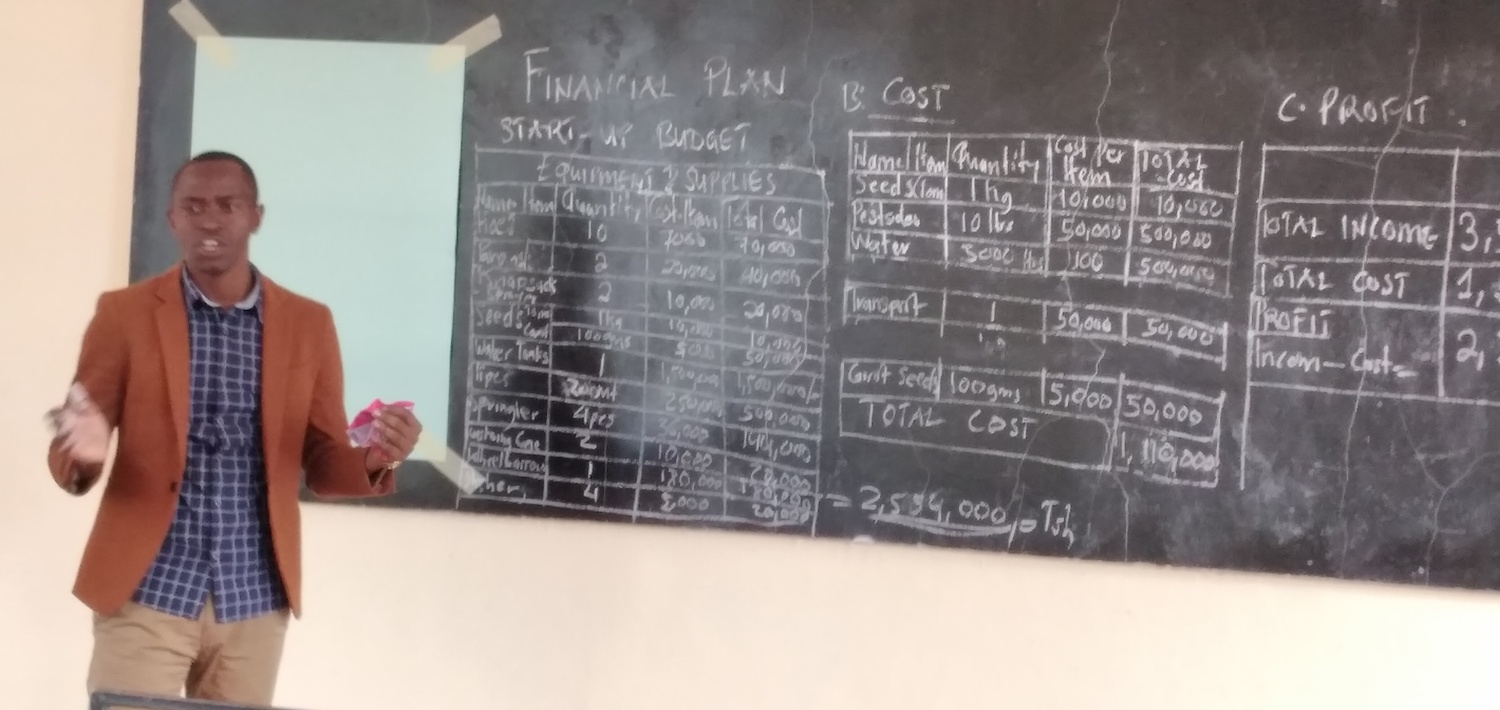 FINANCIAL PLAN
START-UP BUDGET
EQUIPMENT & SUPPLIES
Name Item Quantity Cost/Item Total Cost
Hoes 10 7000 70,000
2 20,000 40,000
2 10,000 20,000
Seed 1kg 10,000 10,000
100gms 500 50,000
Water Tanks 1 1,500,000 1,500,000/-
Pipes 250,000 500,000
Springler 4pcs 144,000
2 10,000
Wheelbarrow 1 180,000
Other 4 5,000 20,000
= 2,554,000/= Tsh
B. COST
Name/Item Quantity Cost Per Item TOTAL COST
Seeds 1kg 10,000 10,000
10 ltrs 50,000 500,000
Water 5000 ltrs 100 500,000
Transport 1 50,000 50,000
100gms 5,000 50,000
TOTAL COST 1,110,000
C. PROFIT.
TOTAL INCOME 3,
TOTAL COST 1,
PROFIT
Incom - Cost = 2,